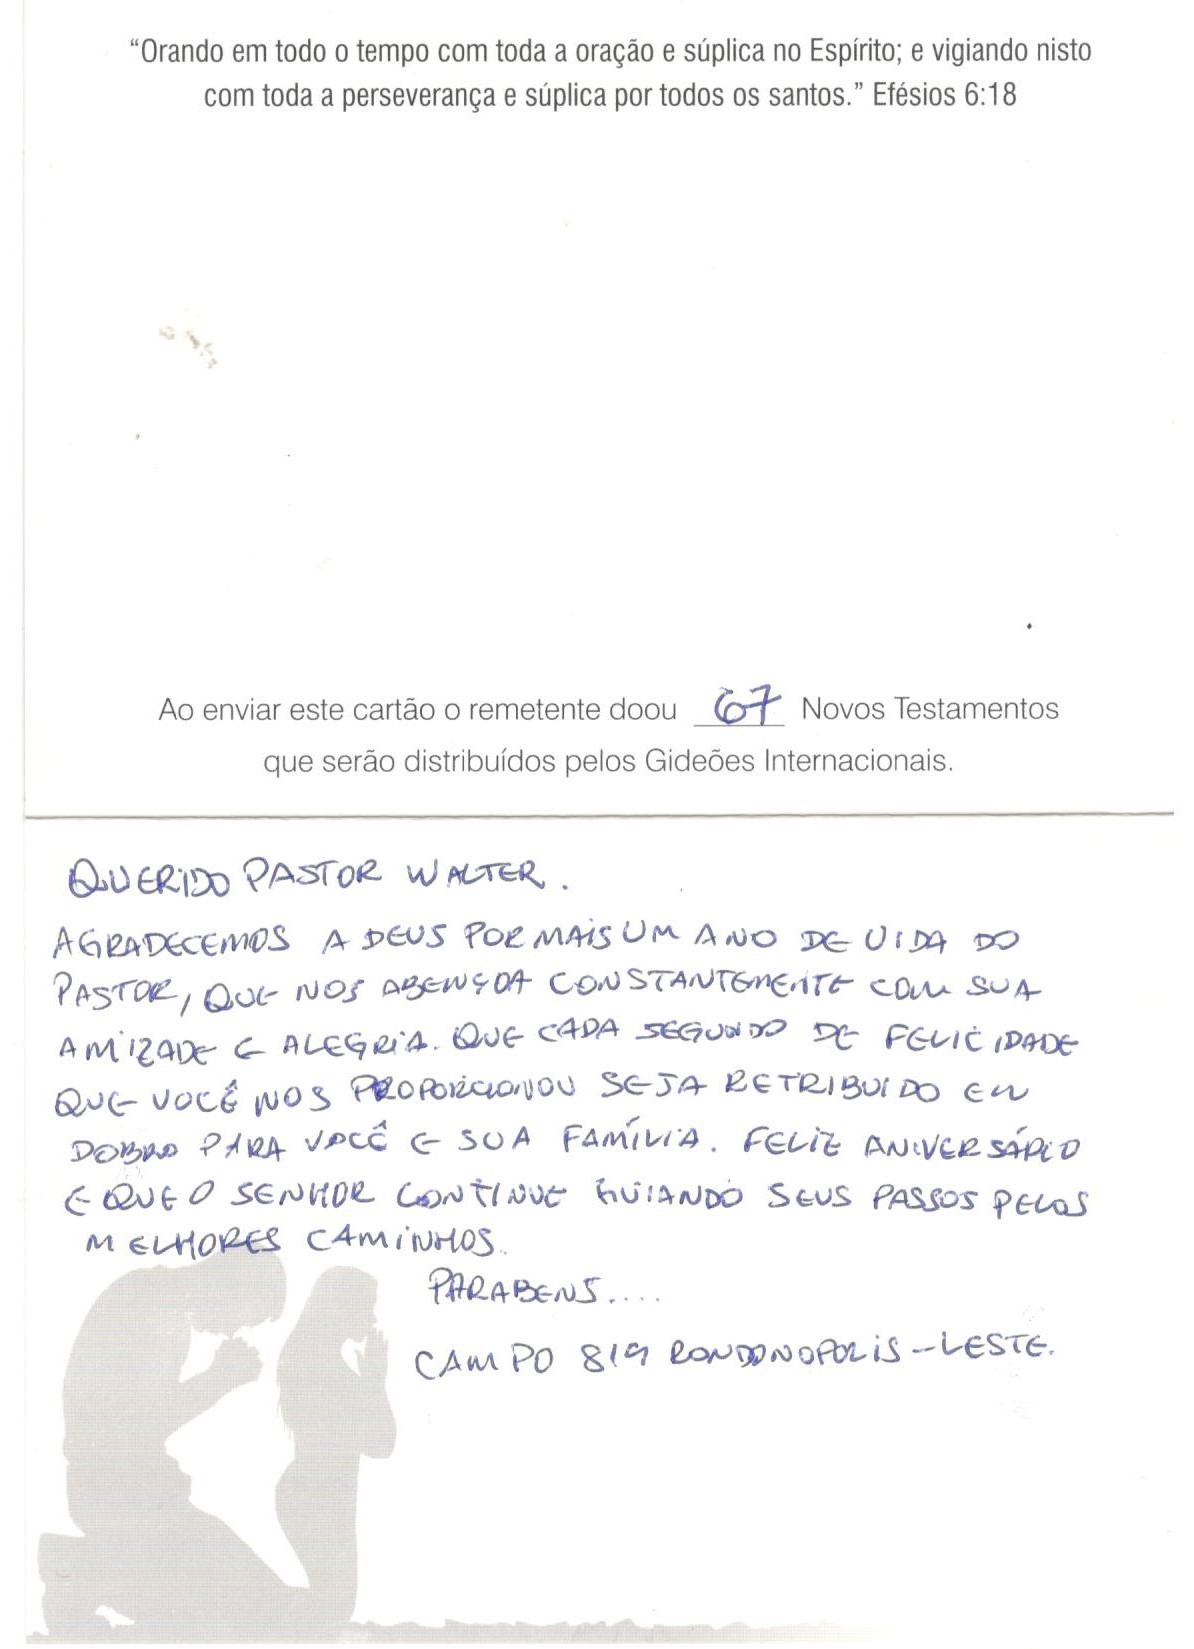 “Orando em todo o tempo com toda a oração e súplica no Espírito; e vigiando nisto
com toda a perseverança e súplica por todos os santos.” Efésios 6:18
Ao enviar este cartão o remetente doou 67 Novos Testamentos
que serão distribuídos pelos Gideões Internacionais.
QUERIDO PASTOR WALTER.
AGRADECEMOS A DEUS POR MAIS UM ANO DE VIDA DO
PASTOR, QUE NOS ABENÇOA CONSTANTEMENTE COM SUA
AMIZADE E ALEGRIA. QUE CADA SEGUNDO DE FELICIDADE
QUE VOCÊ NOS PROPORCIONOU SEJA RETRIBUIDO EM
DOBRO PARA VOCÊ E SUA FAMÍLIA. FELIZ ANIVERSÁRIO
E QUE O SENHOR CONTINUE GUIANDO SEUS PASSOS PELOS
MELHORES CAMINHOS.
PARABENS....
CAMPO 819 RONDONOPOLIS-LESTE.